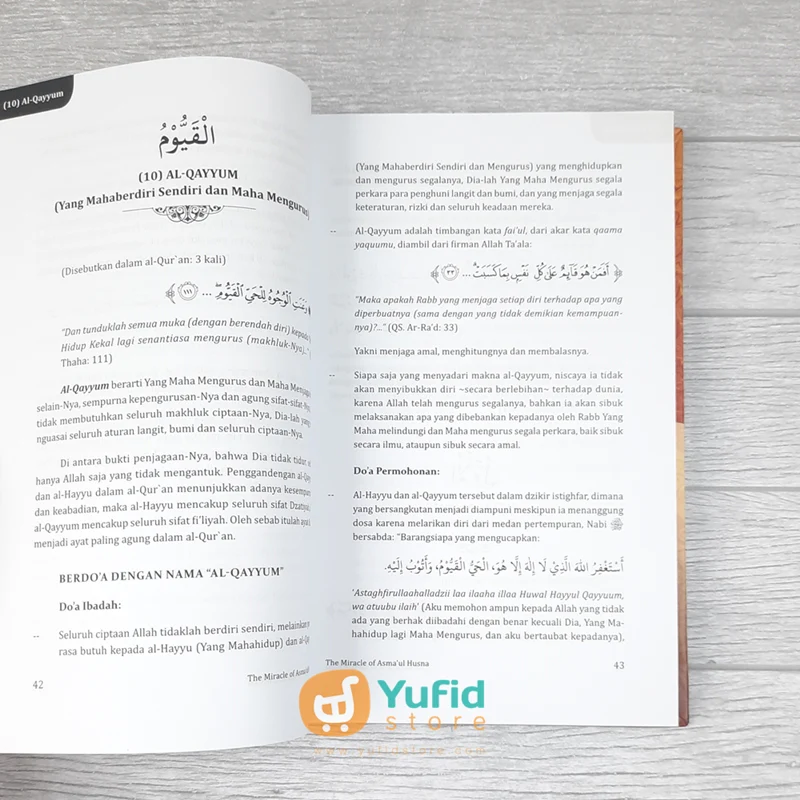 (10) Al-Qayyum
الْقَيُّوْمُ
(10) AL-QAYYUM
(Yang Mahaberdiri Sendiri dan Maha Mengurus)
(Disebutkan dalam al-Qur`an: 3 kali)
وَعَنَتِ ٱلْوُجُوهُ لِلْحَىِّ ٱلْقَيُّومِ ۖ ... ﴿١١١﴾
"Dan tunduklah semua muka (dengan berendah diri) kepada
Hidup Kekal lagi senantiasa mengurus (makhluk-Nya)..."
Thaha: 111)
Al-Qayyum berarti Yang Maha Mengurus dan Maha Menjaga
selain-Nya, sempurna kepengurusan-Nya dan agung sifat-sifat-Ny
tidak membutuhkan seluruh makhluk ciptaan-Nya, Dia-lah yang
nguasai seluruh aturan langit, bumi dan seluruh ciptaan-Nya.
Di antara bukti penjagaan-Nya, bahwa Dia tidak tidur
hanya Allah saja yang tidak mengantuk. Penggandengan al-Qay
dan al-Hayyu dalam al-Qur`an menunjukkan adanya kesempur
dan keabadian, maka al-Hayyu mencakup seluruh sifat Dzatiyah
al-Qayyum mencakup seluruh sifat fi'liyah. Oleh sebab itulah ayat
menjadi ayat paling agung dalam al-Qur`an.
BERDO'A DENGAN NAMA "AL-QAYYUM"
Do'a Ibadah:
-- Seluruh ciptaan Allah tidaklah berdiri sendiri, melainkan
rasa butuh kepada al-Hayyu (Yang Mahahidup) dan al-Q
42
The Miracle of Asma'ul
(Yang Mahaberdiri Sendiri dan Mengurus) yang menghidupkan
dan mengurus segalanya, Dia-lah Yang Maha Mengurus segala
perkara para penghuni langit dan bumi, dan yang menjaga segala
keteraturan, rizki dan seluruh keadaan mereka.
-- Al-Qayyum adalah timbangan kata fai'ul, dari akar kata qaama
yaquumu, diambil dari firman Allah Ta'ala:
﴿ أَفَمَنْ هُوَ قَآئِمٌ عَلَىٰ كُلِّ نَفْسٍۭ بِمَا كَسَبَتْ ۗ ... ﴿٣٣﴾ ﴾
"Maka apakah Rabb yang menjaga setiap diri terhadap apa yang
diperbuatnya (sama dengan yang tidak demikian kemampuan-
nya)?..." (QS. Ar-Ra'd: 33)
Yakni menjaga amal, menghitungnya dan membalasnya.
-- Siapa saja yang menyadari makna al-Qayyum, niscaya ia tidak
akan menyibukkan diri ~secara berlebihan~ terhadap dunia,
karena Allah telah mengurus segalanya, bahkan ia akan sibuk
melaksanakan apa yang dibebankan kepadanya oleh Rabb Yang
Maha melindungi dan Maha Mengurus segala perkara, baik sibuk
secara ilmu, ataupun sibuk secara amal.
Do'a Permohonan:
-- Al-Hayyu dan al-Qayyum tersebut dalam dzikir istighfar, dimana
yang bersangkutan menjadi diampuni meskipun ia menanggung
dosa karena melarikan diri dari medan pertempuran, Nabi ﷺ
bersabda: "Barangsiapa yang mengucapkan:
أَسْتَغْفِرُ اللهَ الَّذِيْ لَا إِلٰهَ إِلَّا هُوَ، الْحَيُّ الْقَيُّوْمُ، وَأَتُوْبُ إِلَيْهِ.
'Astaghfirullaahalladzii laa ilaaha illaa Huwal Hayyul Qayyuum,
wa atuubu ilaih' (Aku memohon ampun kepada Allah yang tidak
ada yang berhak diibadahi dengan benar kecuali Dia, Yang Ma-
hahidup lagi Maha Mengurus, dan aku bertaubat kepadanya),
The Miracle of Asma'ul Husna
43
Yufid
store
www.yufidstore.com